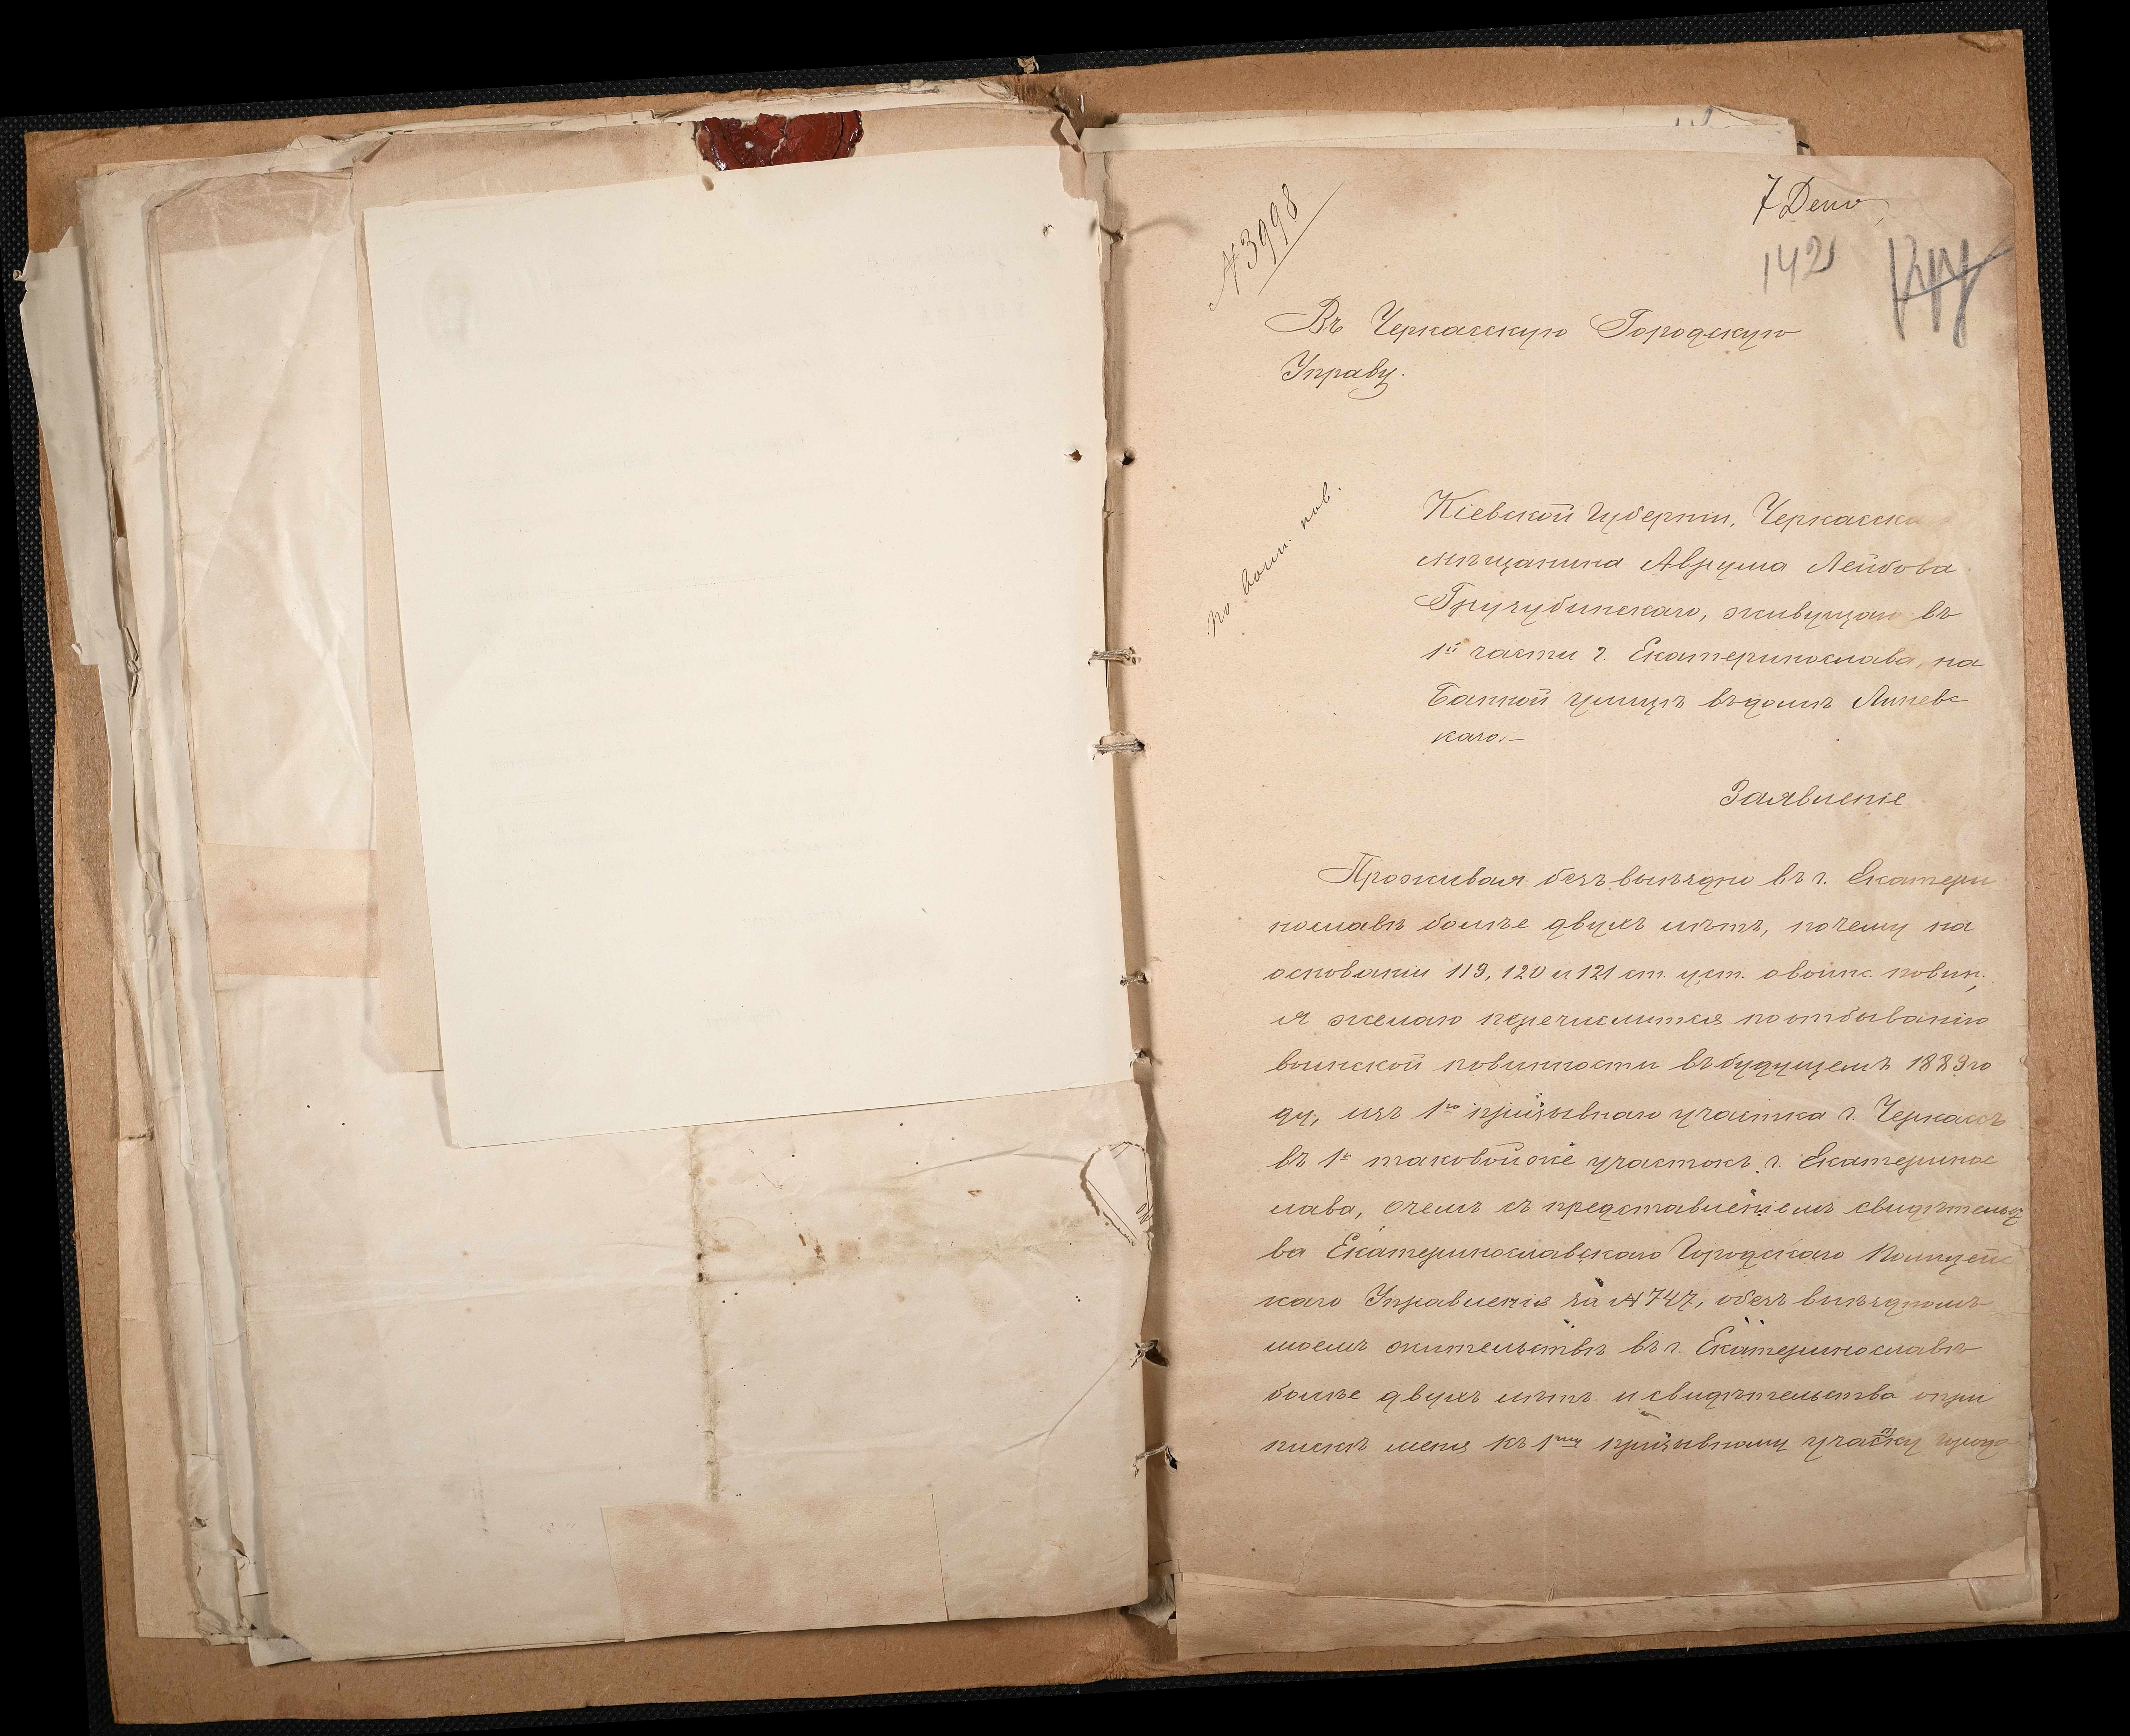 № 3998
7 Деко
142
Въ Черкасскую Городскую
Управу.
по воин. пов.
Кіевской Губерніи, Черкасска
мѣщанина Аврума Лейбова
живущаго въ
1й части г. Екатеринослава, на
Банной улицѣ въ домѣ Липевс
каго.—
Заявленіе
Проживая безъ выѣздно въ г. Екатери
нославѣ болѣе двухъ лѣтъ, почему на
основаніи 119, 120 и 121 ст. уст. о воинс. повин.,
я желаю перечислится по отбыванію
воинской повинности въ будущемъ 1889 го
ду, изъ 1го призывнаго участка г. Черкассъ
въ 1й таковой же участокъ г. Екатеринос
лава, о чемъ съ представленіемъ свидѣтельст
ва Екатеринославскаго Городского Полицейс
каго Управленія за № 747, о безъ выѣздномъ
моемъ жительствѣ въ г. Екатеринославѣ
болѣе двухъ лѣтъ и свидѣтельства о при
пискѣ меня къ 1му призывному участку города